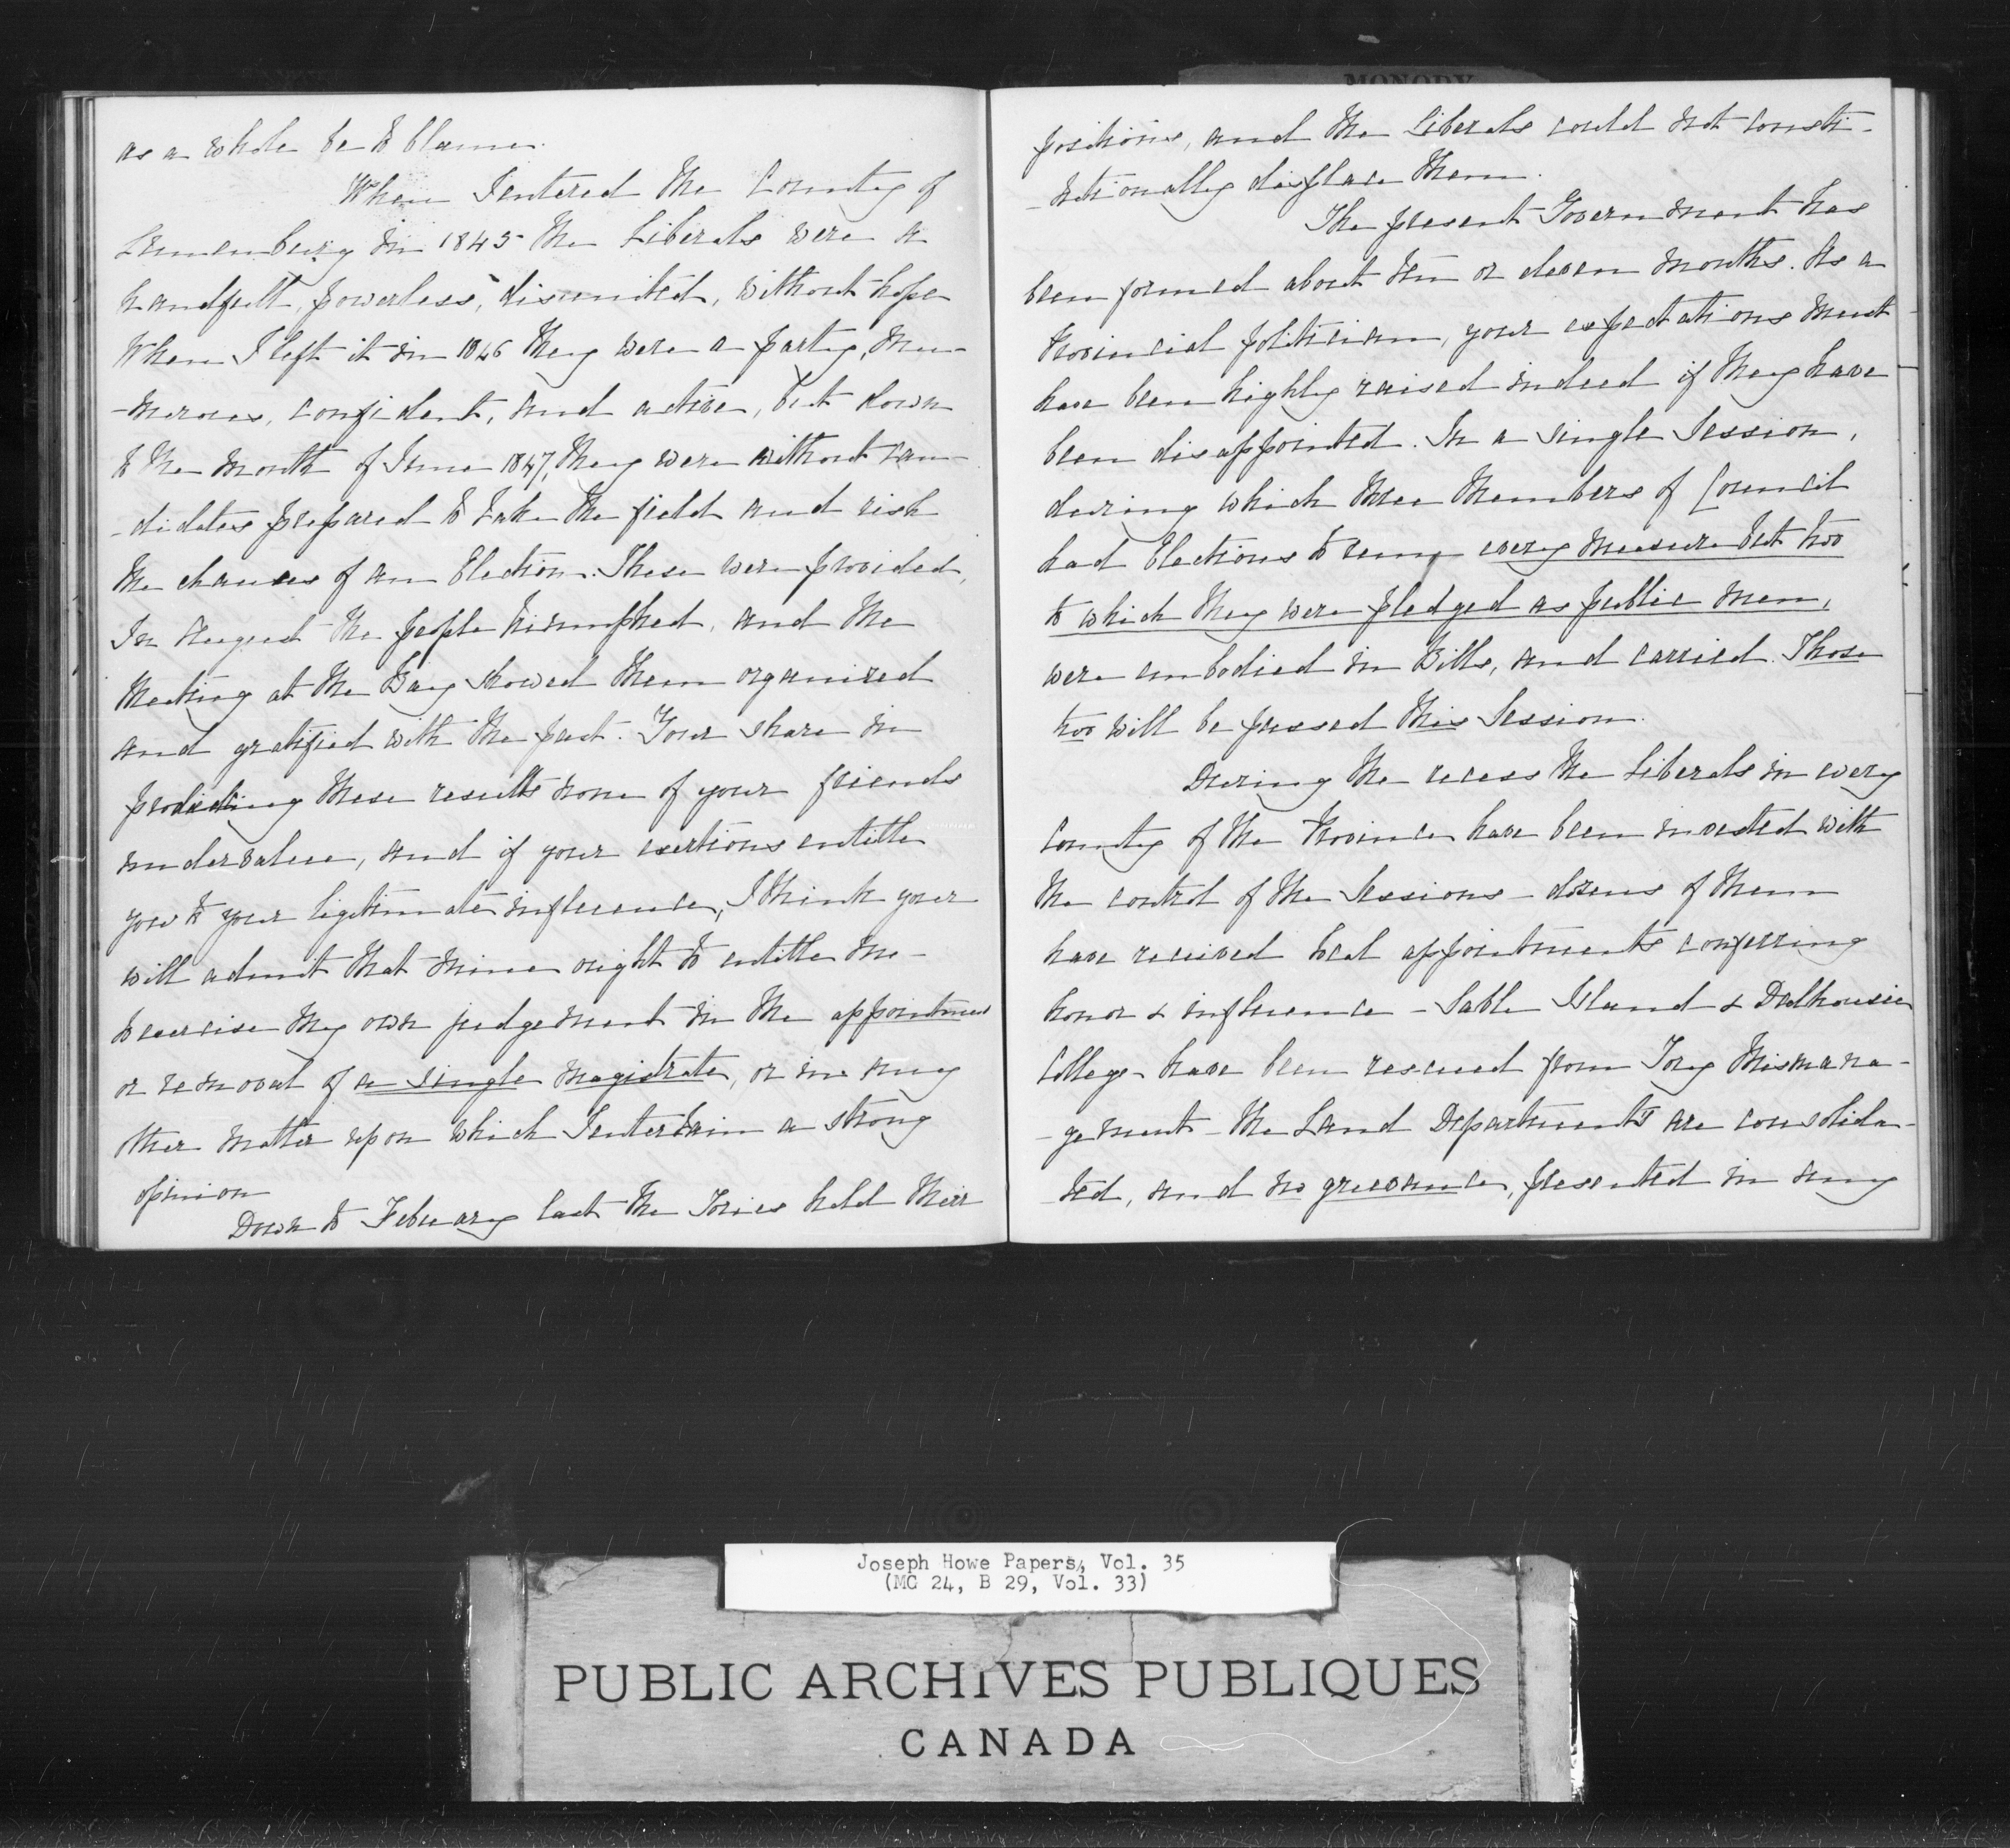 as a whole be to blame.
When I entered the County of
Lunenburg in 1845 the Liberals were a
handfull, powerless, disunited, without hope
When I left it in 1846 they were a party, nu-
-merous, confident, and active, but down
to the month of June 1847, they were without can-
-didates prepared to take the field and risk
the chances of an Election. These were provided,
In August the people triumphed, and the
Meeting at the Bay showed them organized
and gratified with the past. Your share in
producing these results none of your friends
undervalue, and if your exertions entitle
you to your ligitimate influence, I think your
will admit that mine ought to entitle me
to exercise my own judgement in the appointment
or removal of a single magistrate, or in any
other matter upon which I entertain a strong
opinion
Down to February last the Tories held their
MONODY
positions, and the Liberals could not consti-
-tutionally displace them.
The present Government has
been formed about ten or eleven months. As a
Provincial politician, your expectations must
have been highly raised indeed if they have
been disappointed. In a single Session,
during which three Members of Council
had Elections to run, every measure but two
to which they were pledged as public men,
were embodied in Bills, and carried. Those
two will be pressed this Session.
During the recess the Liberals in every
County of the Province have been invested with
the control of the Sessions - dozens of them
have received local appointments conferring
honor & influence - Sable Island & Dalhousie
College have been rescued from Tory Mismana-
-gement - the Land Departments are consolida-
-ted, and no grievance, presented in any
Joseph Howe Papers, Vol. 35
(MG 24, B 29, Vol. 33)
PUBLIC ARCHIVES PUBLIQUES
CANADA